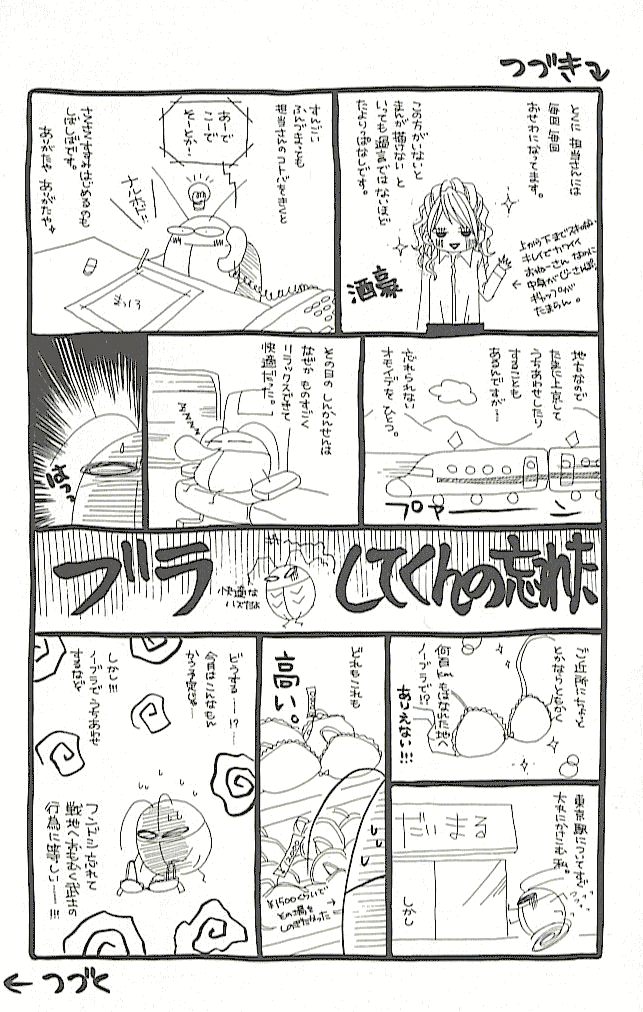 つづき
とくに 担当さんには
毎回 毎回
おせわになってます。
この方がいないと
まんが描けない と
いっても過言ではないほど
たよりっぱなしです。
上から下までスキのない
キレイでカワイイ
おねーさん なのに
中身が
ギャップが
たまらん。
酒豪
さんざん
担当さんのコトバをきくと
あーで
こーで
そーとか…
ナルホドー
まっしろ
地方なので
たまに上京して
うちあわせしたり
することも
あるんですが…
忘れられない
オモイデを ひとつ。
プァーーーン
その日の しんかんせんは
なぜか ものすごく
リラックスできて
快適だった。
ZZZZZ
はっっ
ブラ
してくんの忘れた
快適な
ハズだよ
ご近所にちょっと
とかならともかく
何百kmもはなれた地へ
ノーブラで!?
ありえない!!!
東京駅についてすぐ
大丸にかけこむ私。
だいまる
しかし
どれもこれも
高い。
¥1500くらいで
その場を
しのぎたかった
どうする……!?……
今月はこんなもと
かう予定は…
しかし!!!
ノーブラで うちあわせ
するなど
フンドシ忘れて
戦地へおもむく武士の
行為に等しい……!!!
つづく